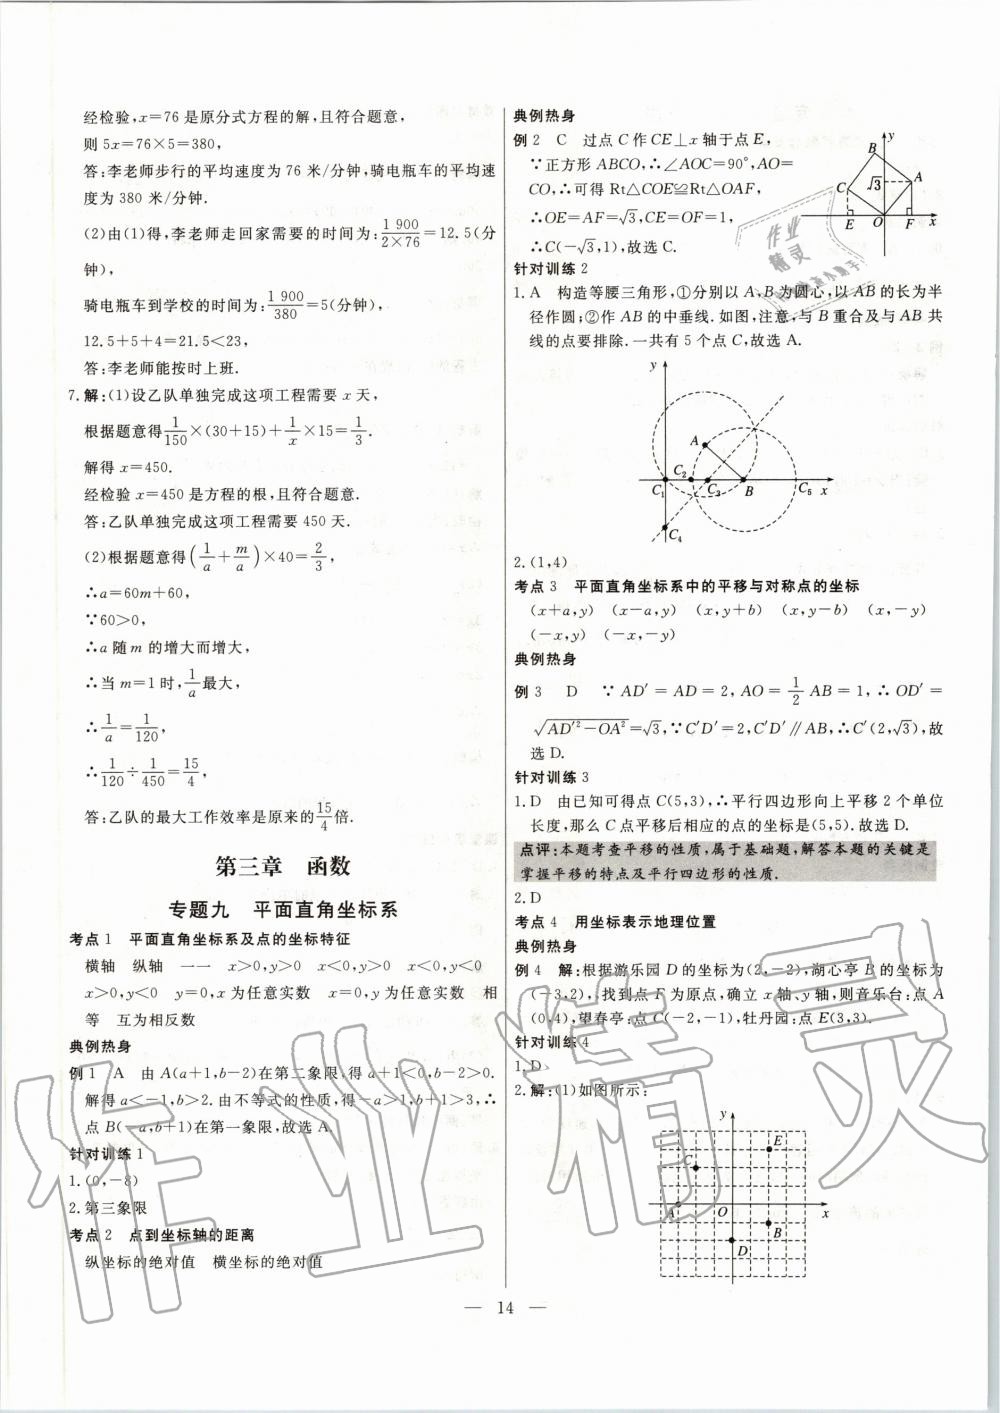 经检验,x=76是原分式方程的解,且符合题意,
则5x=76×5=380,
答:李老师步行的平均速度为76米/分钟,骑电瓶车的平均速
度为380米/分钟.
(2)由(1)得,李老师走回家需要的时间为:1 900/2×76=12.5(分
钟),
骑电瓶车到学校的时间为:1 900/380=5(分钟),
12.5+5+4=21.5<23,
答:李老师能按时上班.
7.解:(1)设乙队单独完成这项工程需要x天,
根据题意得1/150×(30+15)+1/x×15=1/3.
解得x=450.
经检验x=450是方程的根,且符合题意.
答:乙队单独完成这项工程需要450天.
(2)根据题意得(1/a+m/a)×40=2/3,
∴a=60m+60,
∵60>0,
∴a随m的增大而增大,
∴当m=1时,1/a最大,
∴1/a=1/120,
∴1/120÷1/450=15/4,
答:乙队的最大工作效率是原来的15/4倍.
第三章 函数
专题九 平面直角坐标系
考点1 平面直角坐标系及点的坐标特征
横轴 纵轴 一一 x>0,y>0 x<0,y>0 x<0,y<0
x>0,y<0 y=0,x为任意实数 x=0,y为任意实数 相
等 互为相反数
典例热身
例1 A 由A(a+1,b-2)在第二象限,得a+1<0,b-2>0.
解得a<-1,b>2.由不等式的性质,得-a>1,b+1>3,∴
点B(-a,b+1)在第一象限,故选A.
针对训练1
1.(0,-8)
2.第三象限
考点2 点到坐标轴的距离
纵坐标的绝对值 横坐标的绝对值
典例热身
例2 C 过点C作CE⊥x轴于点E,
∵正方形ABCO,∴∠AOC=90°,AO=
CO,∴可得Rt△COE≌Rt△OAF,
∴OE=AF=√3,CE=OF=1,
∴C(-√3,1),故选C.
y
B
A
C
√3
E O F x
针对训练2
1.A 构造等腰三角形,①分别以A、B为圆心,以AB的长为半
径作圆;②作AB的中垂线.如图,注意,与B重合及与AB共
线的点要排除.一共有5个点C,故选A.
y
A
C2
C1 C3 B C5 x
C4
2.(1,4)
考点3 平面直角坐标系中的平移与对称点的坐标
(x+a,y) (x-a,y) (x,y+b) (x,y-b) (x,-y)
(-x,y) (-x,-y)
典例热身
例3 D ∵AD′=AD=2,AO=1/2AB=1,∴OD′=
√AD′²-OA²=√3,∵C′D′=2,C′D′∥AB,∴C′(2,√3),故
选D.
针对训练3
1.D 由已知可得点C(5,3),∴平行四边形向上平移2个单位
长度,那么C点平移后相应的点的坐标是(5,5).故选D.
点评:本题考查平移的性质,属于基础题,解答本题的关键是
掌握平移的特点及平行四边形的性质.
2.D
考点4 用坐标表示地理位置
典例热身
例4 解:根据游乐园D的坐标为(2,-2),湖心亭B的坐标为
(-3,2),找到点F为原点,确立x轴、y轴,则音乐台:点A
(0,4),望春亭:点C(-2,-1),牡丹园:点E(3,3).
针对训练4
1.D
2.解:(1)如图所示:
y
E
C
A O x
B
D
— 14 —
作业精灵
作业
精灵